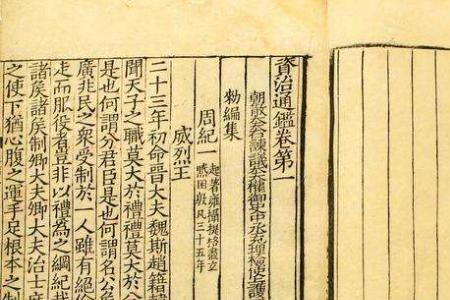 資治通鑑卷第一
朝散大夫右諫議大夫權御史中丞充理檢使上護
勑編集
周紀一 起著雍攝提格盡玄
黓困敦凡三十五年
威烈王
二十三年初命晉大夫魏斯趙籍韓
聞天子之職莫大於禮禮莫大於分
是也何謂分君臣是也何謂名公侯
廣兆民之衆受制於一人雖有絕倫
走而服役者豈非以禮為之綱紀哉
諸侯諸侯制卿大夫卿大夫治士庶
之使下猶心腹之運手足根本之制